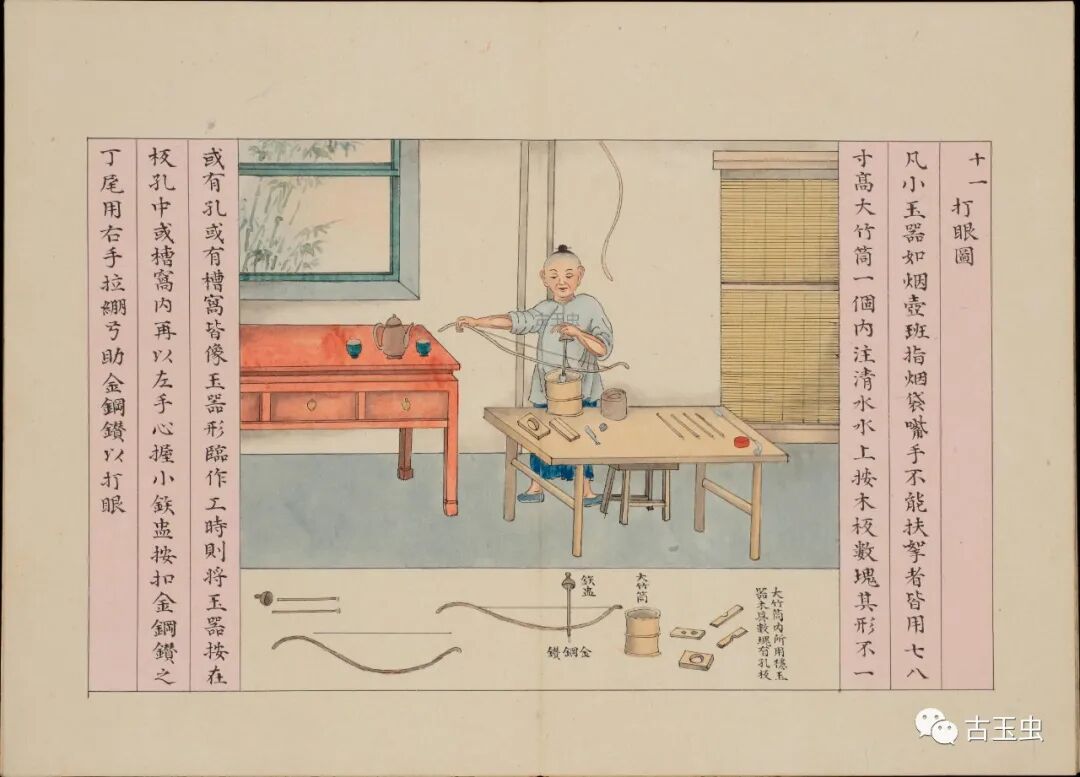 十一打眼圖
凡小玉器如烟壺班指烟袋嘴手不能扶拏者皆用七八
寸高大竹筒一個內注清水水上按木板數塊其形不一
或有孔或有槽窩皆像玉器形臨作工時則將玉器按在
板孔中或槽窩內再以左手心握小鉄盅按扣金鋼鑽之
丁尾用右手拉綳弓助金鋼鑽以打眼
大竹筒內所用穩玉
器木具數塊有孔板
大竹筒
鉄盅
金鋼鑽
古玉虫